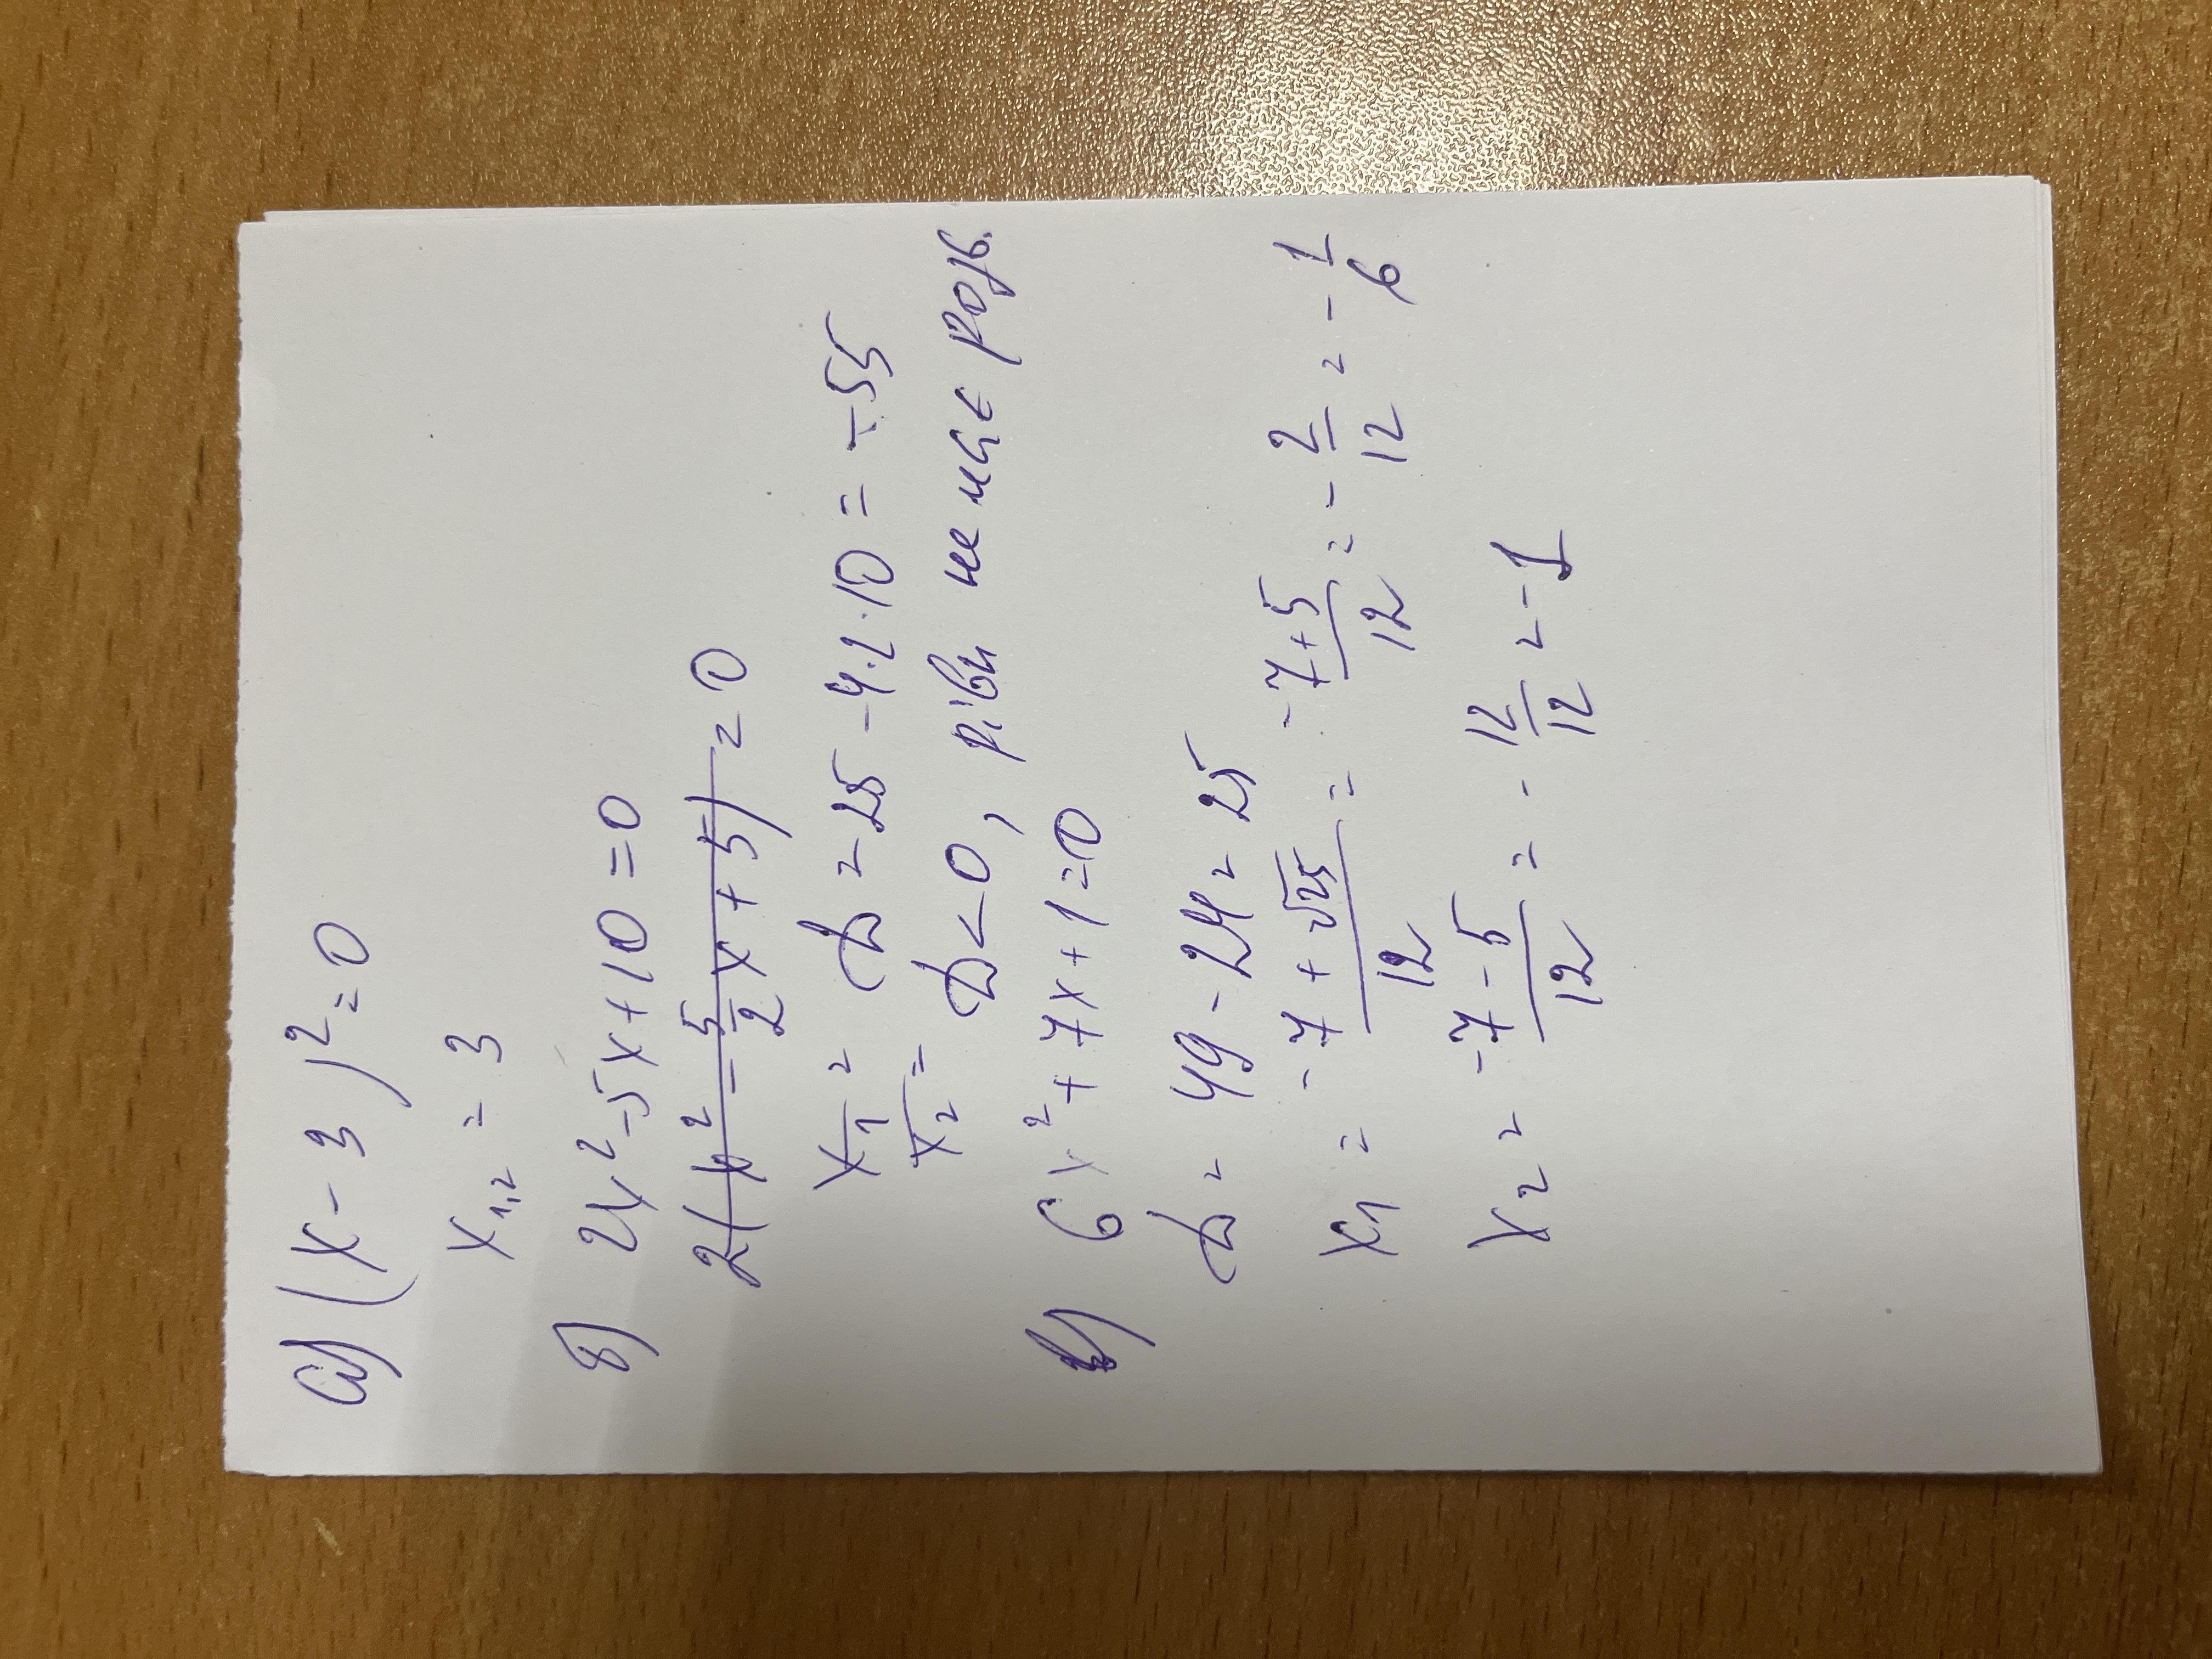 а) (x - 3)² = 0
x₁,₂ = 3
б) 2x² - 5x + 10 = 0
2(x² - 5/2 x + 5) = 0
x₁ = D = 25 - 4·2·10 = -55
x₂ = D < 0, рівн не має розв.
в) 6x² + 7x + 1 = 0
D = 49 - 24 = 25
x₁ = (-7 + √25)/12 = (-7 + 5)/12 = -2/12 = -1/6
x₂ = (-7 - 5)/12 = -12/12 = -1